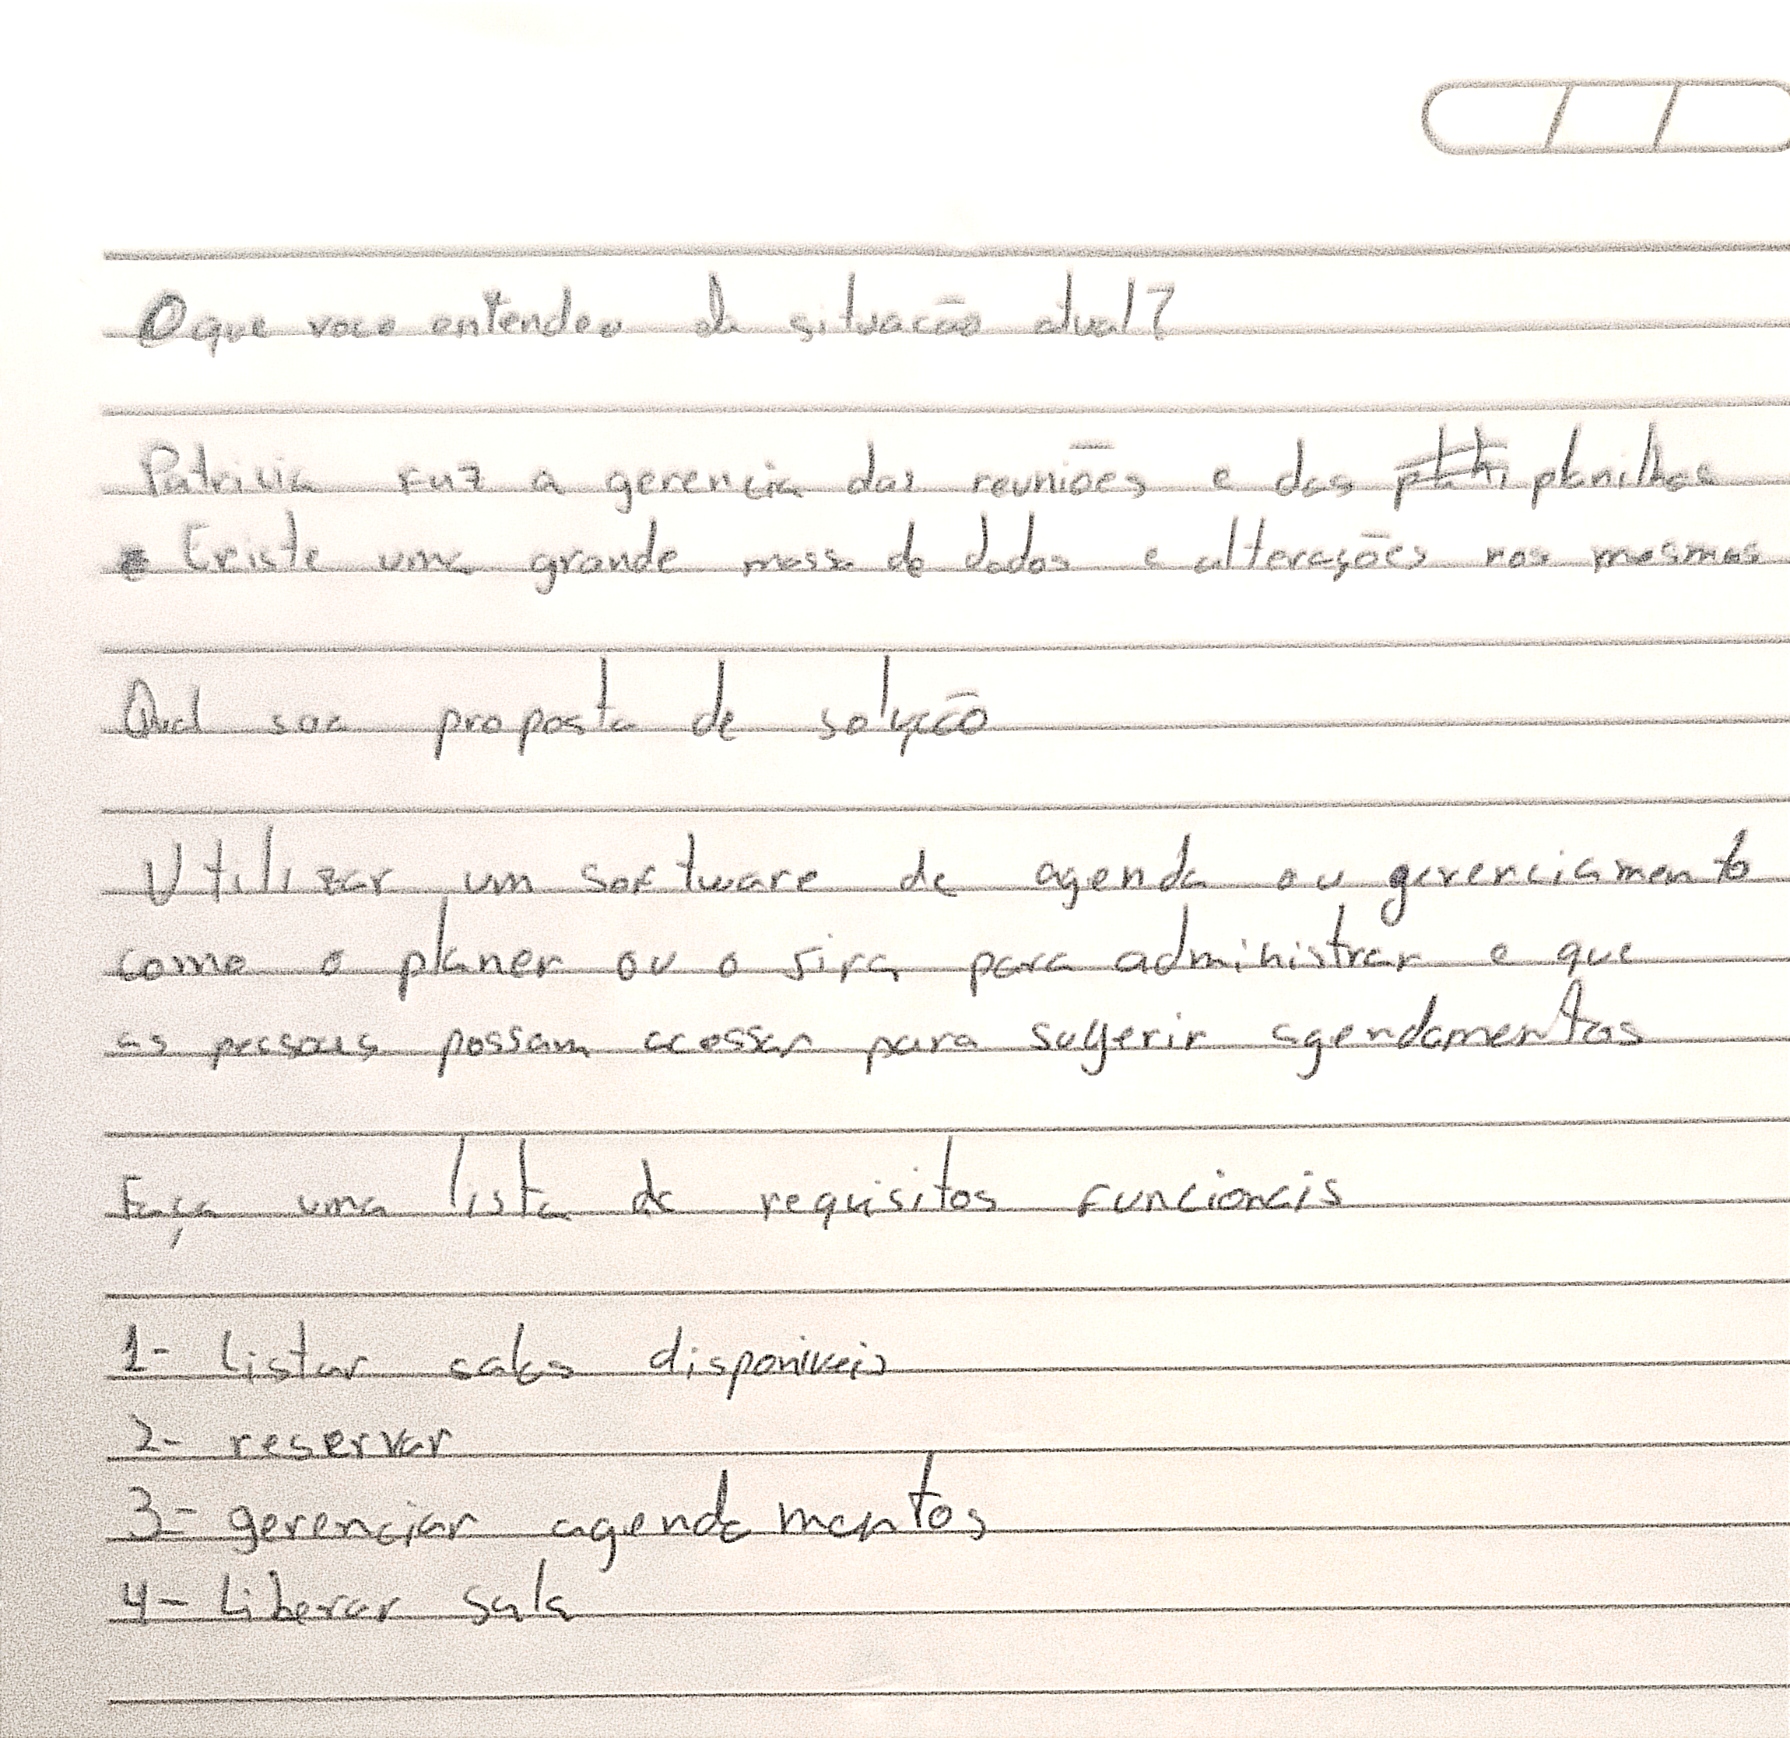 O que voce entendeu da situacão atual?
Patricia faz a gerencia das reuniões e das planilhas
Existe uma grande massa de dados e alterações nas mesmas
Qual sua proposta de solução
Utilizar um software de agenda ou gerenciamento
como o planer ou o para administrar e que
as pessoas possam acessar para sugerir agendamentos
Faça uma lista de requisitos funcionais
1- Listar salas disponiveis
2- reservar
3- gerenciar agendamentos
4- Liberar sala